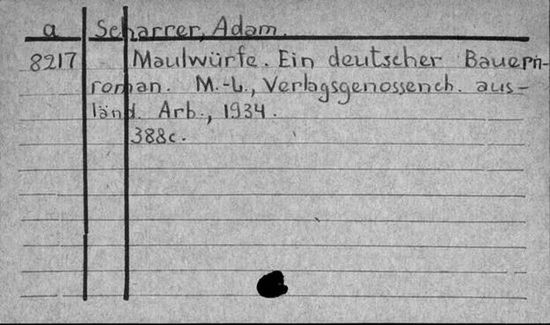 a Scharrer, Adam.
8217 Maulwürfe. Ein deutscher Bauern-
roman. M.-L., Verlagsgenossench. aus-
länd. Arb., 1934.
388c.